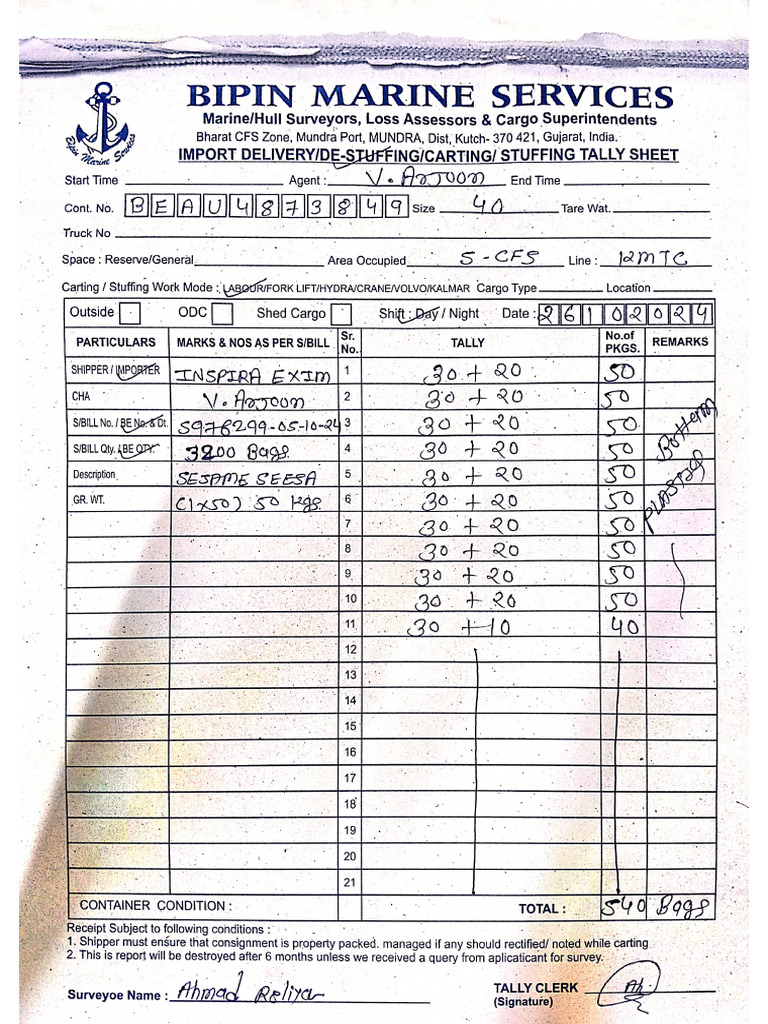 BIPIN MARINE SERVICES
Marine/Hull Surveyors, Loss Assessors & Cargo Superintendents
Bharat CFS Zone, Mundra Port, MUNDRA, Dist, Kutch- 370 421, Gujarat, India.
Bipin Marine Services
IMPORT DELIVERY/DE-STUFFING/CARTING/ STUFFING TALLY SHEET
Start Time Agent : V. Arjoon End Time
Cont. No. BEAU4873849 Size 40 Tare Wat.
Truck No
Space : Reserve/General Area Occupied 5-CFS Line : 12MTC
Carting / Stuffing Work Mode : LABOUR/FORK LIFT/HYDRA/CRANE/VOLVO/KALMAR Cargo Type Location
Outside ODC Shed Cargo Shift : Day / Night Date : 26102024
PARTICULARS MARKS & NOS AS PER S/BILL Sr. No. TALLY No.of PKGS. REMARKS
SHIPPER / IMPORTER INSPIRA EXIM 1 30 + 20 50
CHA V. Arjoon 2 30 + 20 50
S/BILL No. / BE No. & Dt. 5978299-05-10-24 3 30 + 20 50
S/BILL Qty. / BE QTY. 3200 Bags 4 30 + 20 50 Botterm
Description SESAME SEESA 5 30 + 20 50 PLASTIGE
GR. WT. (1x50) 50 kgs 6 30 + 20 50
7 30 + 20 50
8 30 + 20 50
9 30 + 20 50
10 30 + 20 50
11 30 + 10 40
12
13
14
15
16
17
18
19
20
21
CONTAINER CONDITION : TOTAL : 540 Bags
Receipt Subject to following conditions :
1. Shipper must ensure that consignment is property packed. managed if any should rectified/ noted while carting
2. This is report will be destroyed after 6 months unless we received a query from aplicaticant for survey.
Surveyoe Name : Ahmad Reliya TALLY CLERK Ah.
(Signature)